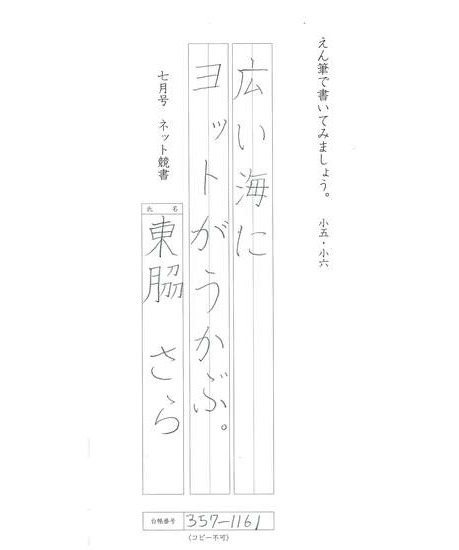 えん筆で書いてみましょう。 小五・小六
広い海に
ヨットがうかぶ。
七月号 ネット競書
氏 名
東脇 さら
台帳番号 357-1161
(コピー不可)